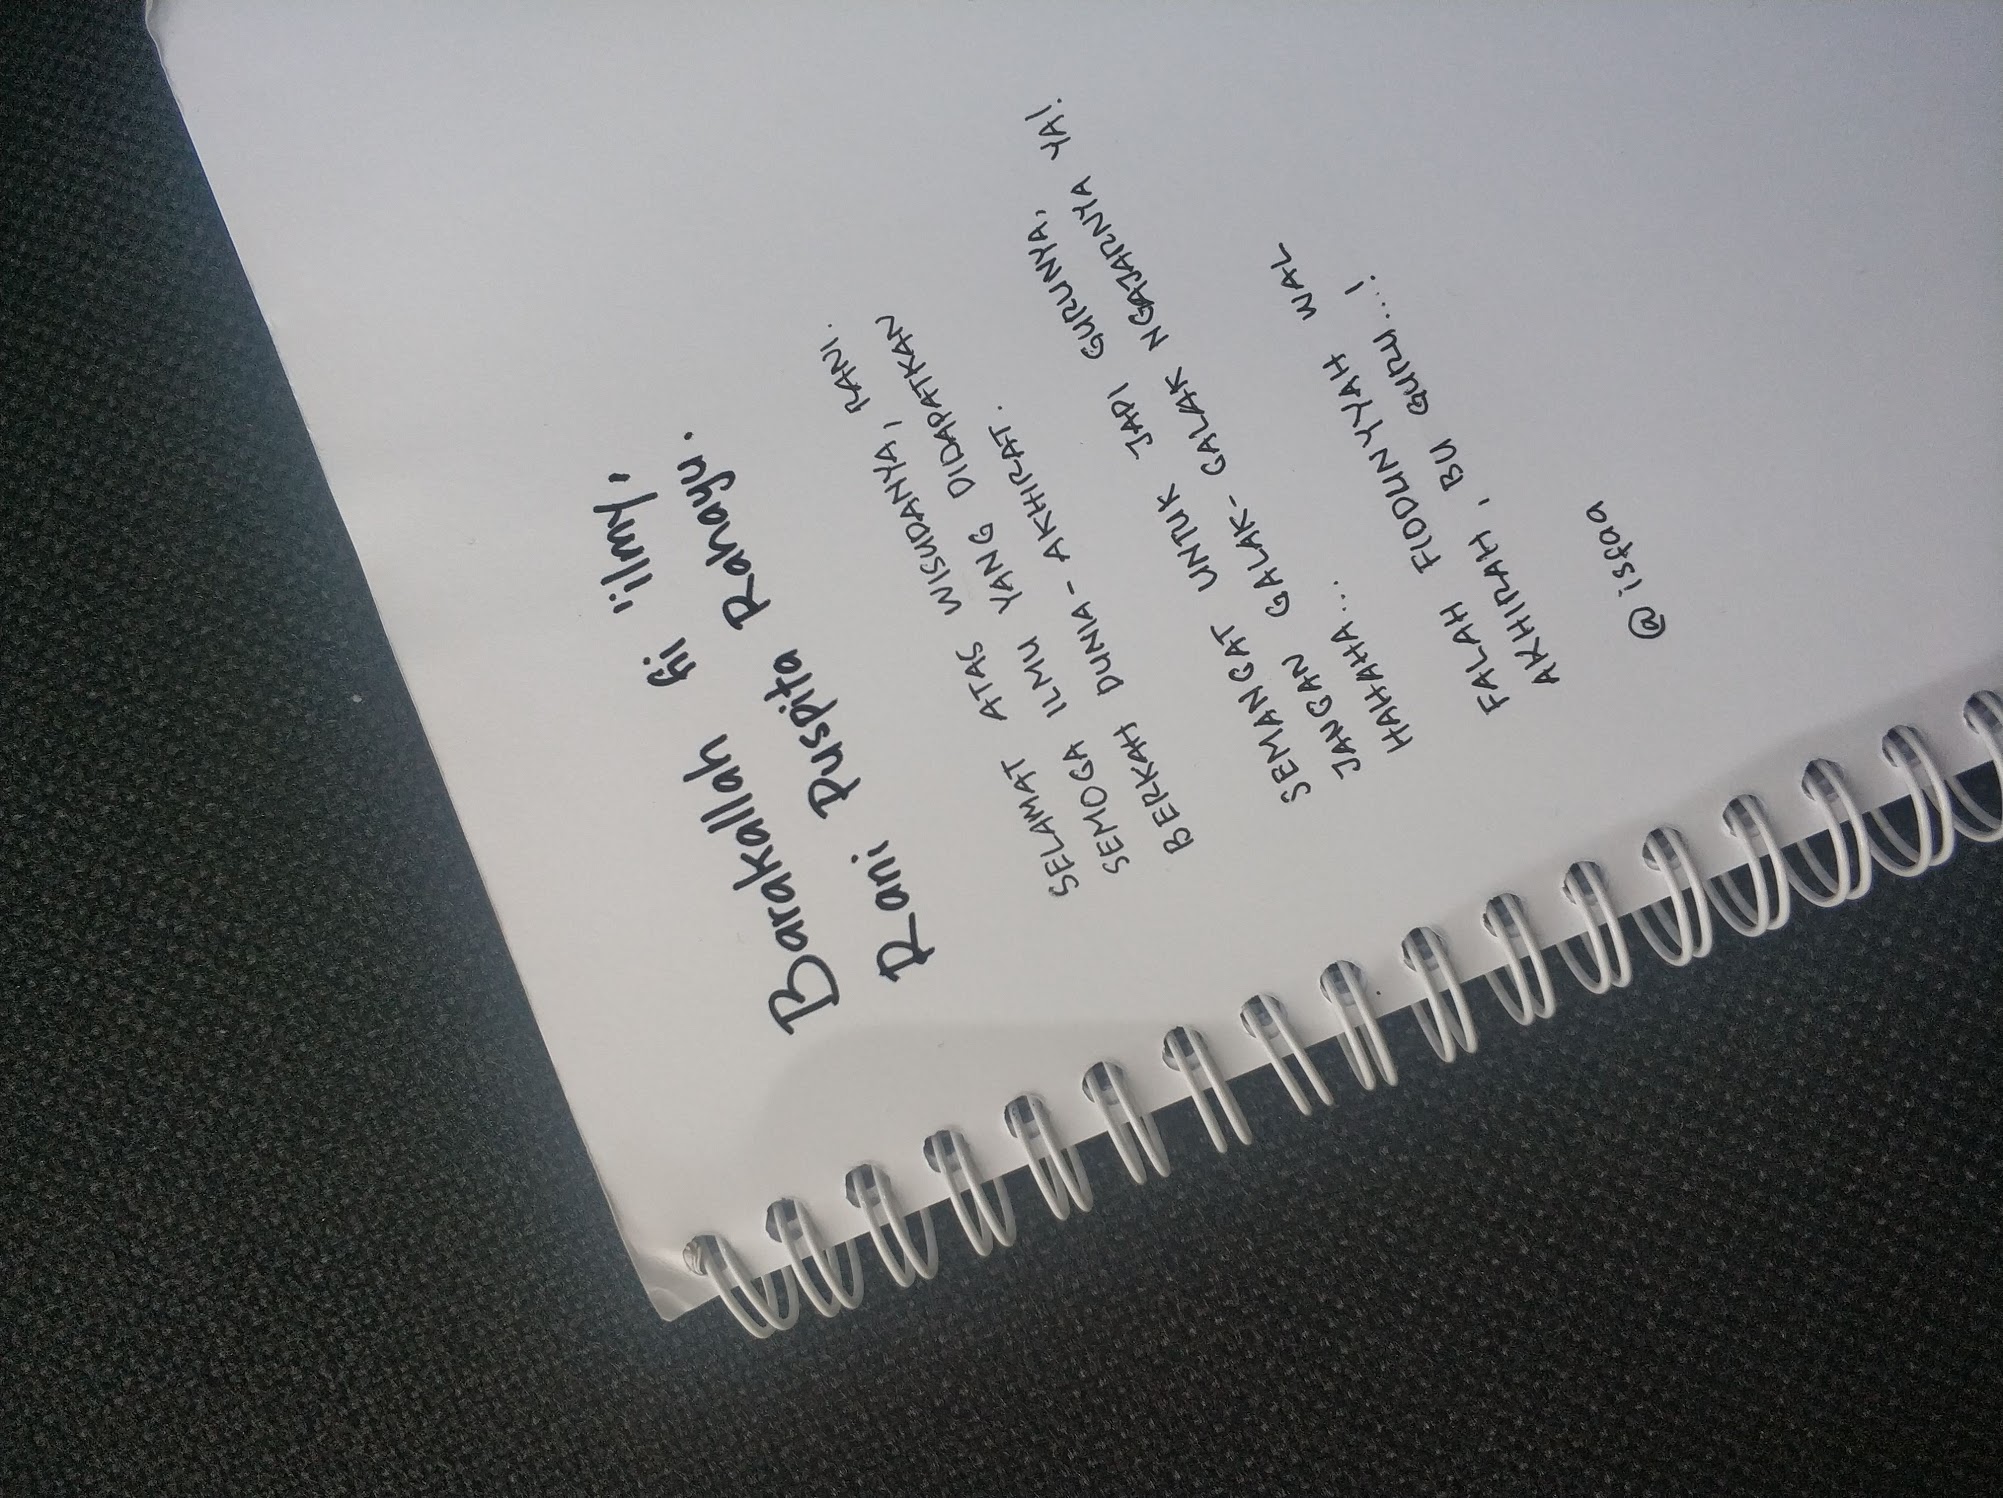 Barakallah fii 'ilmy,
Rani Puspita Rahayu.
SELAMAT ATAS WISUDANYA, RANI.
SEMOGA ILMU YANG DIDAPATKAN
BERKAH DUNIA - AKHIRAT.
SEMANGAT UNTUK JADI GURUNYA,
JANGAN GALAK-GALAK NGAJARNYA YA!.
HAHAHA...
FALAH FIDDUNYYAH WAL
AKHIRAH, BU GURU...!
@isfaa